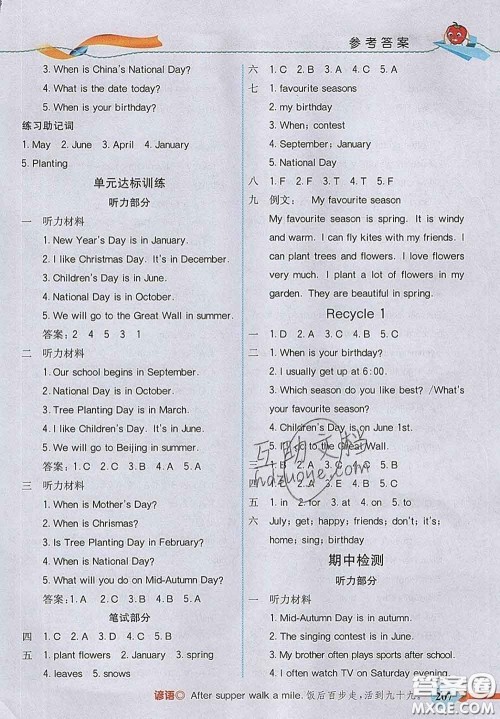 参考答案
3. When is China's National Day?
4. What is the date today?
5. When is your birthday?
练习助记词
1. May 2. June 3. April 4. January
5. Planting
单元达标训练
听力部分
一 听力材料
1. New Year's Day is in January.
2. I like Christmas Day. It's in December.
3. Children's Day is in June.
4. National Day is in October.
5. We will go to the Great Wall in summer.
答案: 2 4 5 3 1
二 听力材料
1. Our school begins in September.
2. National Day is in October.
3. Tree Planting Day is in March.
4. I like Children's Day. It's in June.
5. We will go to Beijing in summer.
答案: 1. C 2. C 3. A 4. B 5. A
三 听力材料
1. When is Mother's Day?
2. When is Chrismas?
3. Is Tree Planting Day in February?
4. When is National Day?
5. What will you do on Mid-Autumn Day?
答案: 1. A 2. B 3. B 4. C 5. A
笔试部分
四 1. C 2. A 3. D 4. C 5. A
五 1. plant flowers 2. January 3. sing
4. leaves 5. snows
六 1. C 2. B 3. A 4. B 5. C
七 1. favourite seasons
2. my birthday
3. When; contest
4. September; January
5. National Day
八 1. F 2. F 3. T 4. T 5. F
九 例文: My favourite season
My favourite season is spring. It is windy
and warm. I can fly kites with my friends. I
can plant trees and flowers. I love flowers
very much. I plant a lot of flowers in my
garden. They are beautiful.
Recycle 1
一 1. D 2. A 3. C 4. B 5. C
二 1. When is your birthday?
2. I usually get up at 6:00.
3. Which season do you like best? /What's
your favourite season?
4. Children's Day is on June 1st.
5. I'd like to go to the Great Wall.
三 1. B 2. A 3. C 4. B 5. A
四 1. C 2. A 3. A 4. B 5. C
五 1. in 2. for 3. at 4. on 5. to
六 July; get; happy; friends; on; it;
sends; sing; birthday; time
期中检测
听力部分
一 听力材料
1. Mid-Autumn Day is in autumn.
2. The singing contest is in June.
3. My father often goes shopping.
4. I often watch TV on Saturday evening.
谚语 After supper walk a mile. 饭后百步走,活到九十九。
267
互助文档
hdzuoye.com
答案圈
MXQE.COM